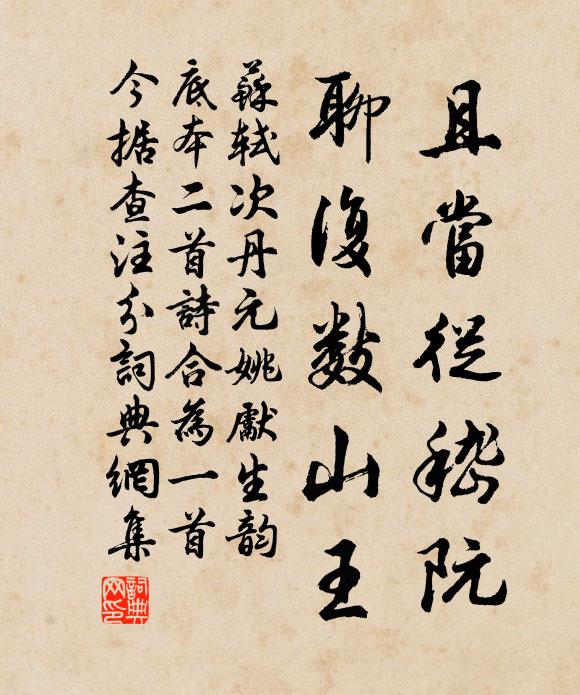 且當從嵇阮
聊復數山王
蘇軾次丹元姚獻生韵
底本二首詩合為一首
今据查注分詞典網集
詞典网印